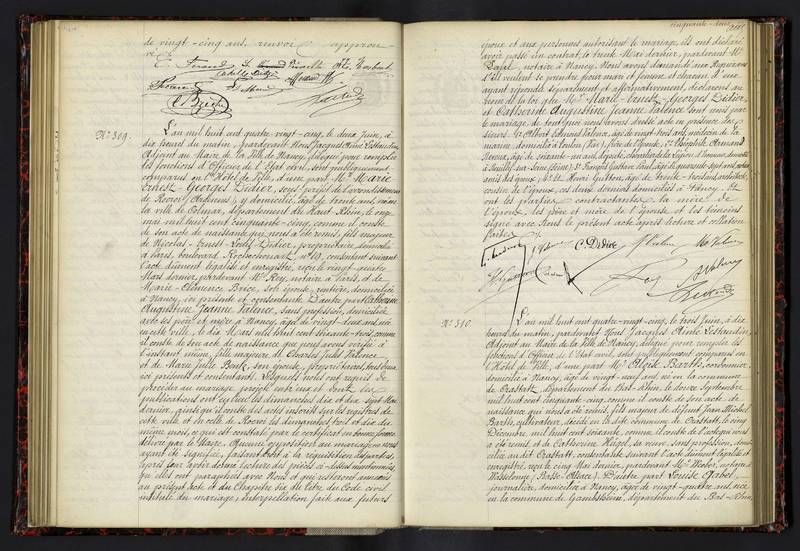 de vingt-cinq ans, renvoi approu-
vé
N° 309.
L'an mil huit cent quatre-vingt-cinq, le deux Juin, à
dix heures du matin, pardevant Nous Jacques Aimé
Adjoint au Maire de la Ville de Nancy, délégué pour remplir
les fonctions d'Officier de l'Etat civil, sont publiquement
comparus en l'Hôtel de Ville, d'une part Mr Marie
Ernest Georges Didier, sous-préfet de l'arrondissement
de Rocroi (Ardennes), y domicilié, âgé de trente ans, né en
la ville de Colmar, département du Haut-Rhin, le onze
mai mil huit cent cinquante-cinq, comme il conste
de son acte de naissance que nous a été remis, fils majeur
de Nicolas-Ernest-Louis Didier, propriétaire, domicilié
à Paris, boulevard Rochechouart, n° 19, consentant suivant
l'acte dûment légalisé et enregistré, reçu le vingt-quatre
Mars dernier, pardevant Me Rey, notaire à Paris, et de
Marie-Clémence Brice, son épouse, rentière, domiciliée
à Nancy, ici présente et consentante. D'autre part Catherine
Augustine Jeanne Valence, sans profession, domiciliée
avec ses père et mère à Nancy, âgée de vingt-deux ans, née
en cette ville, le dix Mars mil huit cent soixante-trois, comme
il conste de son acte de naissance que nous avons vérifié à
l'instant même, fille majeure de Charles Jules Valence
et de Marie Julie Bouk, son épouse, propriétaires, tous deux
ici présents et consentants. Lesquels nous ont requis de
procéder au mariage projeté entr'eux et dont les
publications ont eu lieu les dimanches dix et dix-sept Mai
dernier, ainsi qu'il conste des actes inscrits sur les registres de
cette ville et de celle de Rocroi les dimanches trois et dix du
même mois, ce qui est constaté par le certificat en bonne forme
délivré par le Maire. Aucune opposition au mariage ne nous
ayant été signifiée, faisant droit à la réquisition des parties,
après leur avoir donné lecture des pièces ci-dessus mentionnées,
qu'elles ont paraphées avec Nous et qui resteront annexées
au présent acte et du Chapitre six du titre du Code civil
intitulé du mariage; Interpellation faite aux futurs
cinquante-deux
époux et aux personnes autorisant le mariage, ils ont déclaré
avoir passé un contrat, le trente Mai dernier, pardevant Me
notaire à Nancy. Nous avons demandé aux comparants
s'ils veulent se prendre pour mari et femme, et chacun d'eux
ayant répondu séparément et affirmativement, déclarons au
nom de la loi que Mr Marie-Ernest-Georges Didier,
et Catherine Augustine Jeanne Valence sont unis par
le mariage. de tout quoi nous avons dressé acte en présence des
sieurs: 1° Albert Edmond Valence, âgé de vingt-trois ans, médecin de la
marine, domicilié à Toulon (Var), frère de l'épouse, 2° Théophile Armand
âgé de soixante-un ans, député, chevalier de la Légion d'honneur, domicilié
à Neuilly-sur-Seine
cousin de l'épouse, ces deux derniers domiciliés à Nancy. Et
ont les parties contractantes, la mère de
l'époux, les père et mère de l'épouse et les témoins
signé avec Nous le présent acte après lecture et collation
faite.
C. Didier
N° 310.
L'an mil huit cent quatre-vingt-cinq, le trois Juin, à dix
heures du matin, pardevant Nous Jacques Aimé
Adjoint au Maire de la Ville de Nancy, délégué pour remplir les
fonctions d'Officier de l'Etat civil, sont publiquement comparus en
l'Hôtel de Ville, d'une part Mr Aloïse Barth, cordonnier,
domicilié à Nancy, âgé de vingt-neuf ans, né en la commune
de Crastatt, département du Bas-Rhin, le douze Septembre
mil huit cent cinquante-cinq, comme il conste de son acte de
naissance qui nous a été remis, fils majeur de défunt Jean Michel
Barth, cultivateur, décédé en la dite commune de Crastatt, le cinq
Décembre mil huit cent soixante, comme il conste de l'acte que nous
a été remis, et de Catherine Hügel, sa veuve, sans profession, domi-
ciliée au dit Crastatt, consentante suivant l'acte dûment légalisé et
enregistré, reçu le cinq Mai dernier, pardevant Me Weber, notaire à
Wasselonne (Basse-Alsace). D'autre part Louise Gabel,
journalière, domiciliée à Nancy, âgée de vingt-quatre ans, née
en la commune de Gambsheim, département du Bas-Rhin,